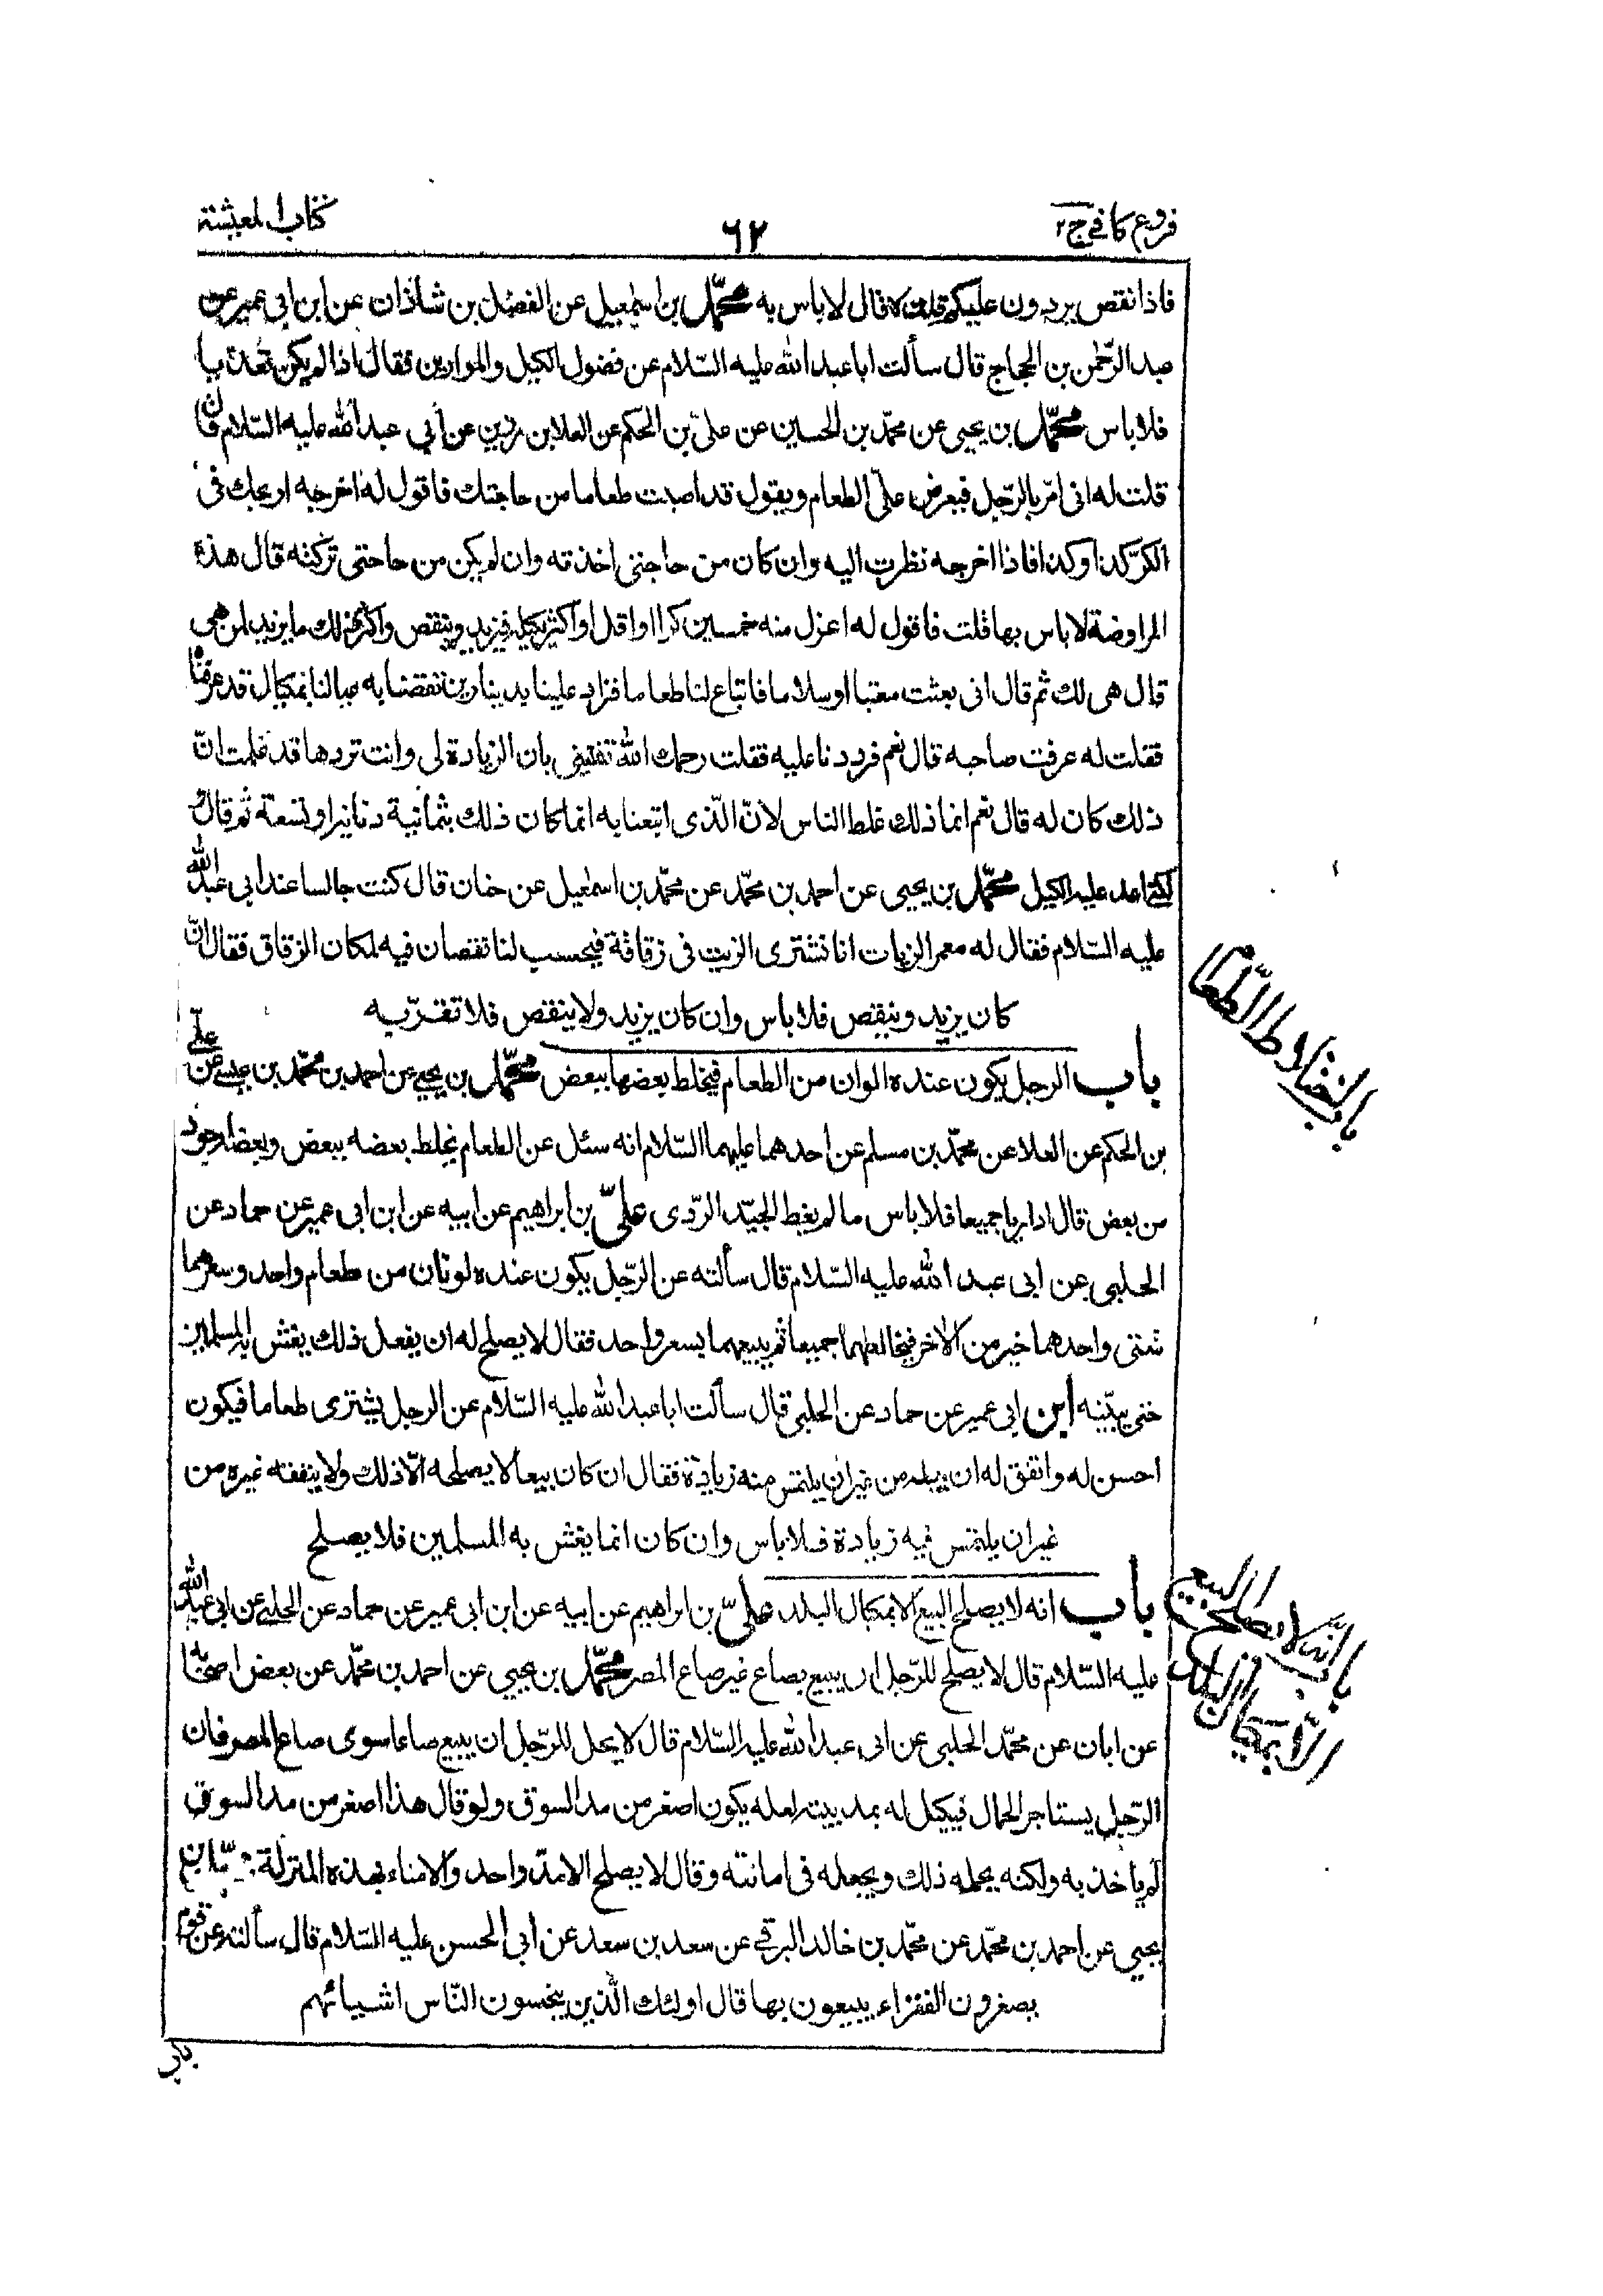 فروع كافي ج٢
٦٢
كتاب المعيشة
فاذا نقص يردون عليكم قلت لا قال لا باس به محمّد بن اسمٰعيل عن الفضل بن شاذان عن ابن ابي عمير عن
عبد الرّحمٰن بن الحجاج قال سألت ابا عبد الله عليه السّلام عن فضول الكيل والموازين فقال اذا لم يكن تعدّيا
فلا باس محمّد بن يحيى عن محمّد بن الحسين عن علىّ بن الحكم عن العلا بن رزين عن أبي عبد الله عليه السّلام قال
قلت له انى امرّ بالرّجل فيعرض علىّ الطعام ويقول قد اصبت طعاما من حاجتك فاقول له اخرجه اربحك فى
الكرّ كذا وكذا فاذا اخرجه نظرت اليه وان كان من حاجتى اخذته وان لم يكن من حاجتى تركته قال هذه
المراوضة لا باس بها قلت فاقول له اعزل منه خمسين كرا او اقل او اكثر بكيله فيزيد وينقص واكثر ذلك ما يزيد لمن هى
قال هى لك ثم قال انى بعثت معتبا او سلاما فابتاع لنا طعاما فزاد علينا بدينارين فقضنا به عيالنا بمكيال قد عرفناه
فقلت له عرفت صاحبه قال نعم فرددنا عليه فقلت رحمك الله تفتينى بان الزيادة لى وانت تردها قد علمت انّ
ذلك كان له قال نعم انما ذلك غلط الناس لانّ الّذى ابتعنا به انما كان ذلك بثمانية دنانير او تسعة ثم قال
لكنى اعد عليه الكيل محمّد بن يحيى عن احمد بن محمّد عن محمّد بن اسمٰعيل عن حنان قال كنت جالسا عند ابى عبد الله
عليه السّلام فقال له معمر الزيات انا نشترى الزيت فى زقاقة فيحسب لنا نقصان فيه لمكان الزقاق فقال ان
كان يزيد وينقص فلا باس وان كان يزيد ولا ينقص فلا تقربه
باب الرجل يكون عنده الوان من الطعام فيخلط بعضها ببعض محمّد بن يحيى عن احمد بن محمّد بن عيسى عن علىّ
بن الحكم عن العلا عن محمّد بن مسلم عن احدهما عليهما السّلام انه سئل عن الطعام يخلط بعضه ببعض وبعضه اجود
من بعض قال اذا ريا جميعا فلا باس ما لم يغط الجيّد الرّدى علىّ بن ابراهيم عن ابيه عن ابن ابى عمير عن حماد عن
الحلبى عن ابى عبد الله عليه السّلام قال سألته عن الرّجل يكون عنده لونان من طعام واحد وسعرهما
شتى واحدهما خير من الاخر فيخالطهما جميعا ثم يبيعهما بسعر واحد فقال لا يصلح له ان يفعل ذلك يغش به المسلمين
حتى يبيّنه ابن ابى عمير عن حماد عن الحلبى قال سألت ابا عبد الله عليه السّلام عن الرجل يشترى طعاما فيكون
احسن له وانفق له ان يبله من غير ان يلتمس منه زيادة فقال ان كان بيعا لا يصلحه الّا ذلك ولا ينفقه غيره من
غير ان يلتمس فيه زيادة فلا باس وان كان انما يغش به المسلمين فلا يصلح
باب انه لا يصلح البيع الا بمكيال البلد علىّ بن ابراهيم عن ابيه عن ابن ابى عمير عن حماد عن الحلبى عن ابى عبد الله
عليه السّلام قال لا يصلح للرّجل ان يبيع بصاع غير صاع المصر محمّد بن يحيى عن احمد بن محمّد عن بعض اصحابنا
عن ابان عن محمّد الحلبى عن ابى عبد الله عليه السّلام قال لا يحل للرّجل ان يبيع صاعا سوى صاع المصر فان
الرّجل يستاجر الحمال فيكيل له بمد بيته لعله يكون اصغر من مد السوق ولو قال هذا اصغر من مد السوق
لم ياخذ به ولكنه يحمله ذلك ويجعله فى امانته وقال لا يصلح الا مد واحد والامناء بهذه المنزلة بن
يحيى عن احمد بن محمّد عن محمّد بن خالد البرقى عن سعد بن سعد عن أبى الحسن عليه السّلام قال سألته عن قوم
يصغرون القفزاء يبيعون بها قال اولئك الّذين يبخسون النّاس اشيائهم
باب
باب خلوط الطّعام
باب انّه لا يصلح البيع
الّا بمكيال البلد